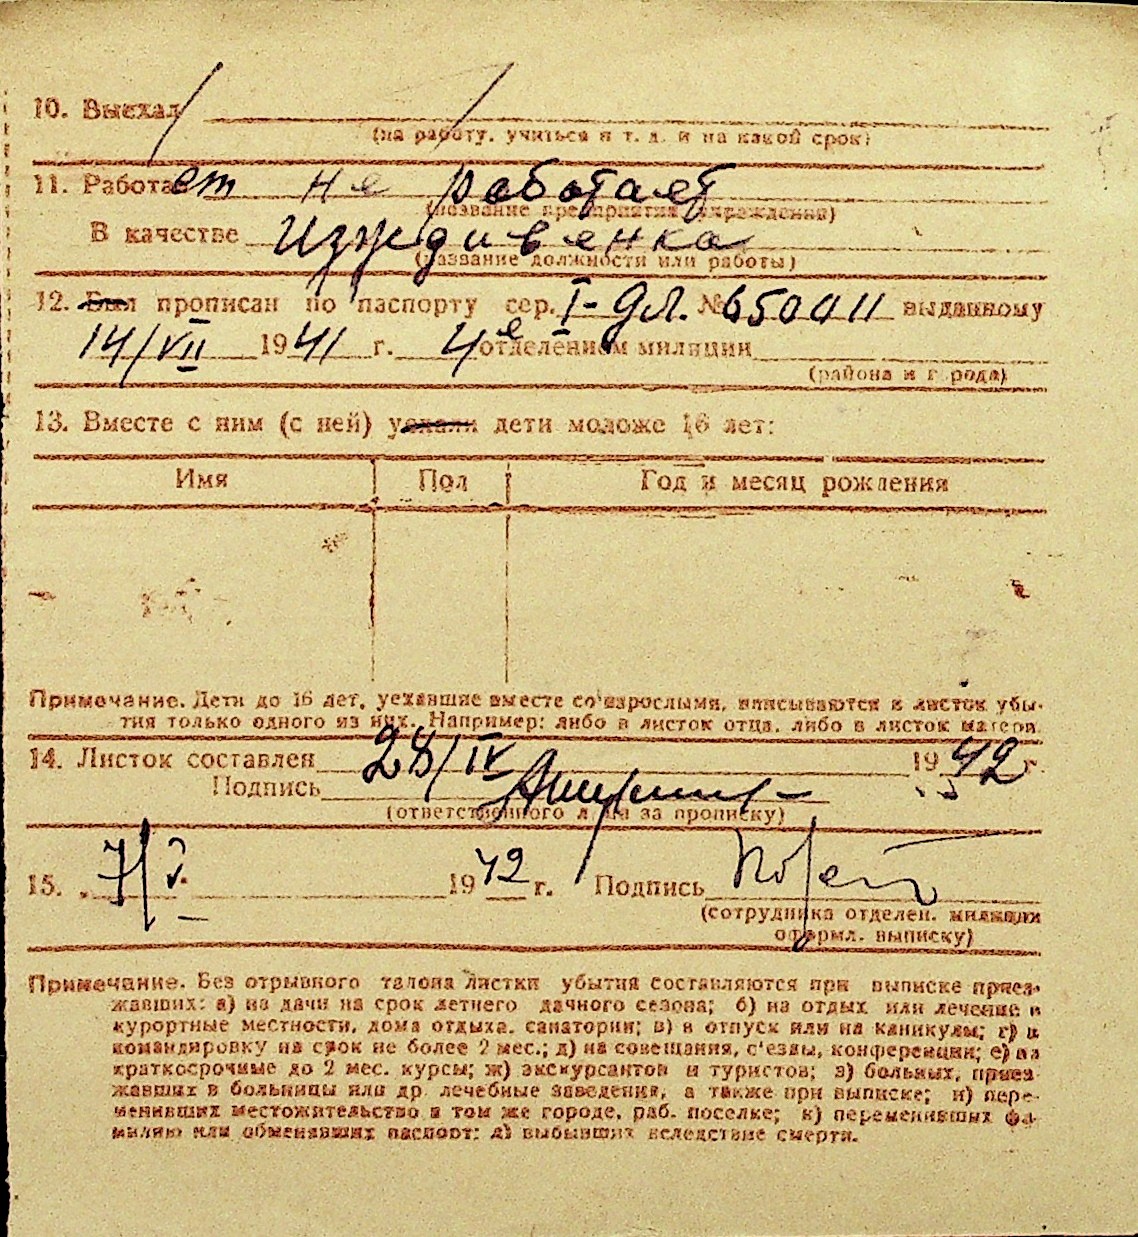 10. Выехал
(на работу, учиться и т. д. и на какой срок)
11. Работает не работает
(название предприятия, учреждения)
В качестве иждивенка
(название должности или работы)
12. Был прописан по паспорту сер. I-дл. № 650011 выданному
14/VII 1941 г. 4е отделением милиции
(района и города)
13. Вместе с ним (с ней) уехали дети моложе 16 лет:
Имя Пол Год и месяц рождения
Примечание. Дети до 16 лет, уехавшие вместе со взрослыми, вписываются в листок убы-
тия только одного из них. Например: либо в листок отца, либо в листок матери.
14. Листок составлен 28/IV 1942 г.
Подпись
(ответственного лица за прописку)
15. 7/V 1942 г. Подпись
(сотрудника отделен. милиции
оформл. выписку)
Примечание. Без отрывного талона листки убытия составляются при выписке приез-
жавших: а) на дачи на срок летнего дачного сезона; б) на отдых или лечение в
курортные местности, дома отдыха, санатории; в) в отпуск или на каникулы; г) в
командировку на срок не более 2 мес.; д) на совещания, с'езды, конференции; е) на
краткосрочные до 2 мес. курсы; ж) экскурсантов и туристов; з) больных, приез
жавших в больницы или др лечебные заведения, а также при выписке; и) пере-
менивших местожительство в том же городе, раб. поселке; к) переменивших фа-
милию или обменявших паспорт; л) выбывших вследствие смерти.